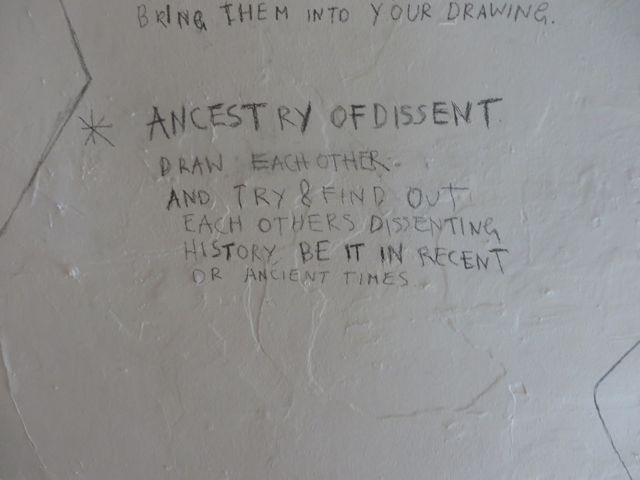 BRING THEM INTO YOUR DRAWING.
* ANCESTRY OF DISSENT
DRAW EACH OTHER-
AND TRY & FIND OUT
EACH OTHERS DISSENTING
HISTORY BE IT IN RECENT
OR ANCIENT TIMES